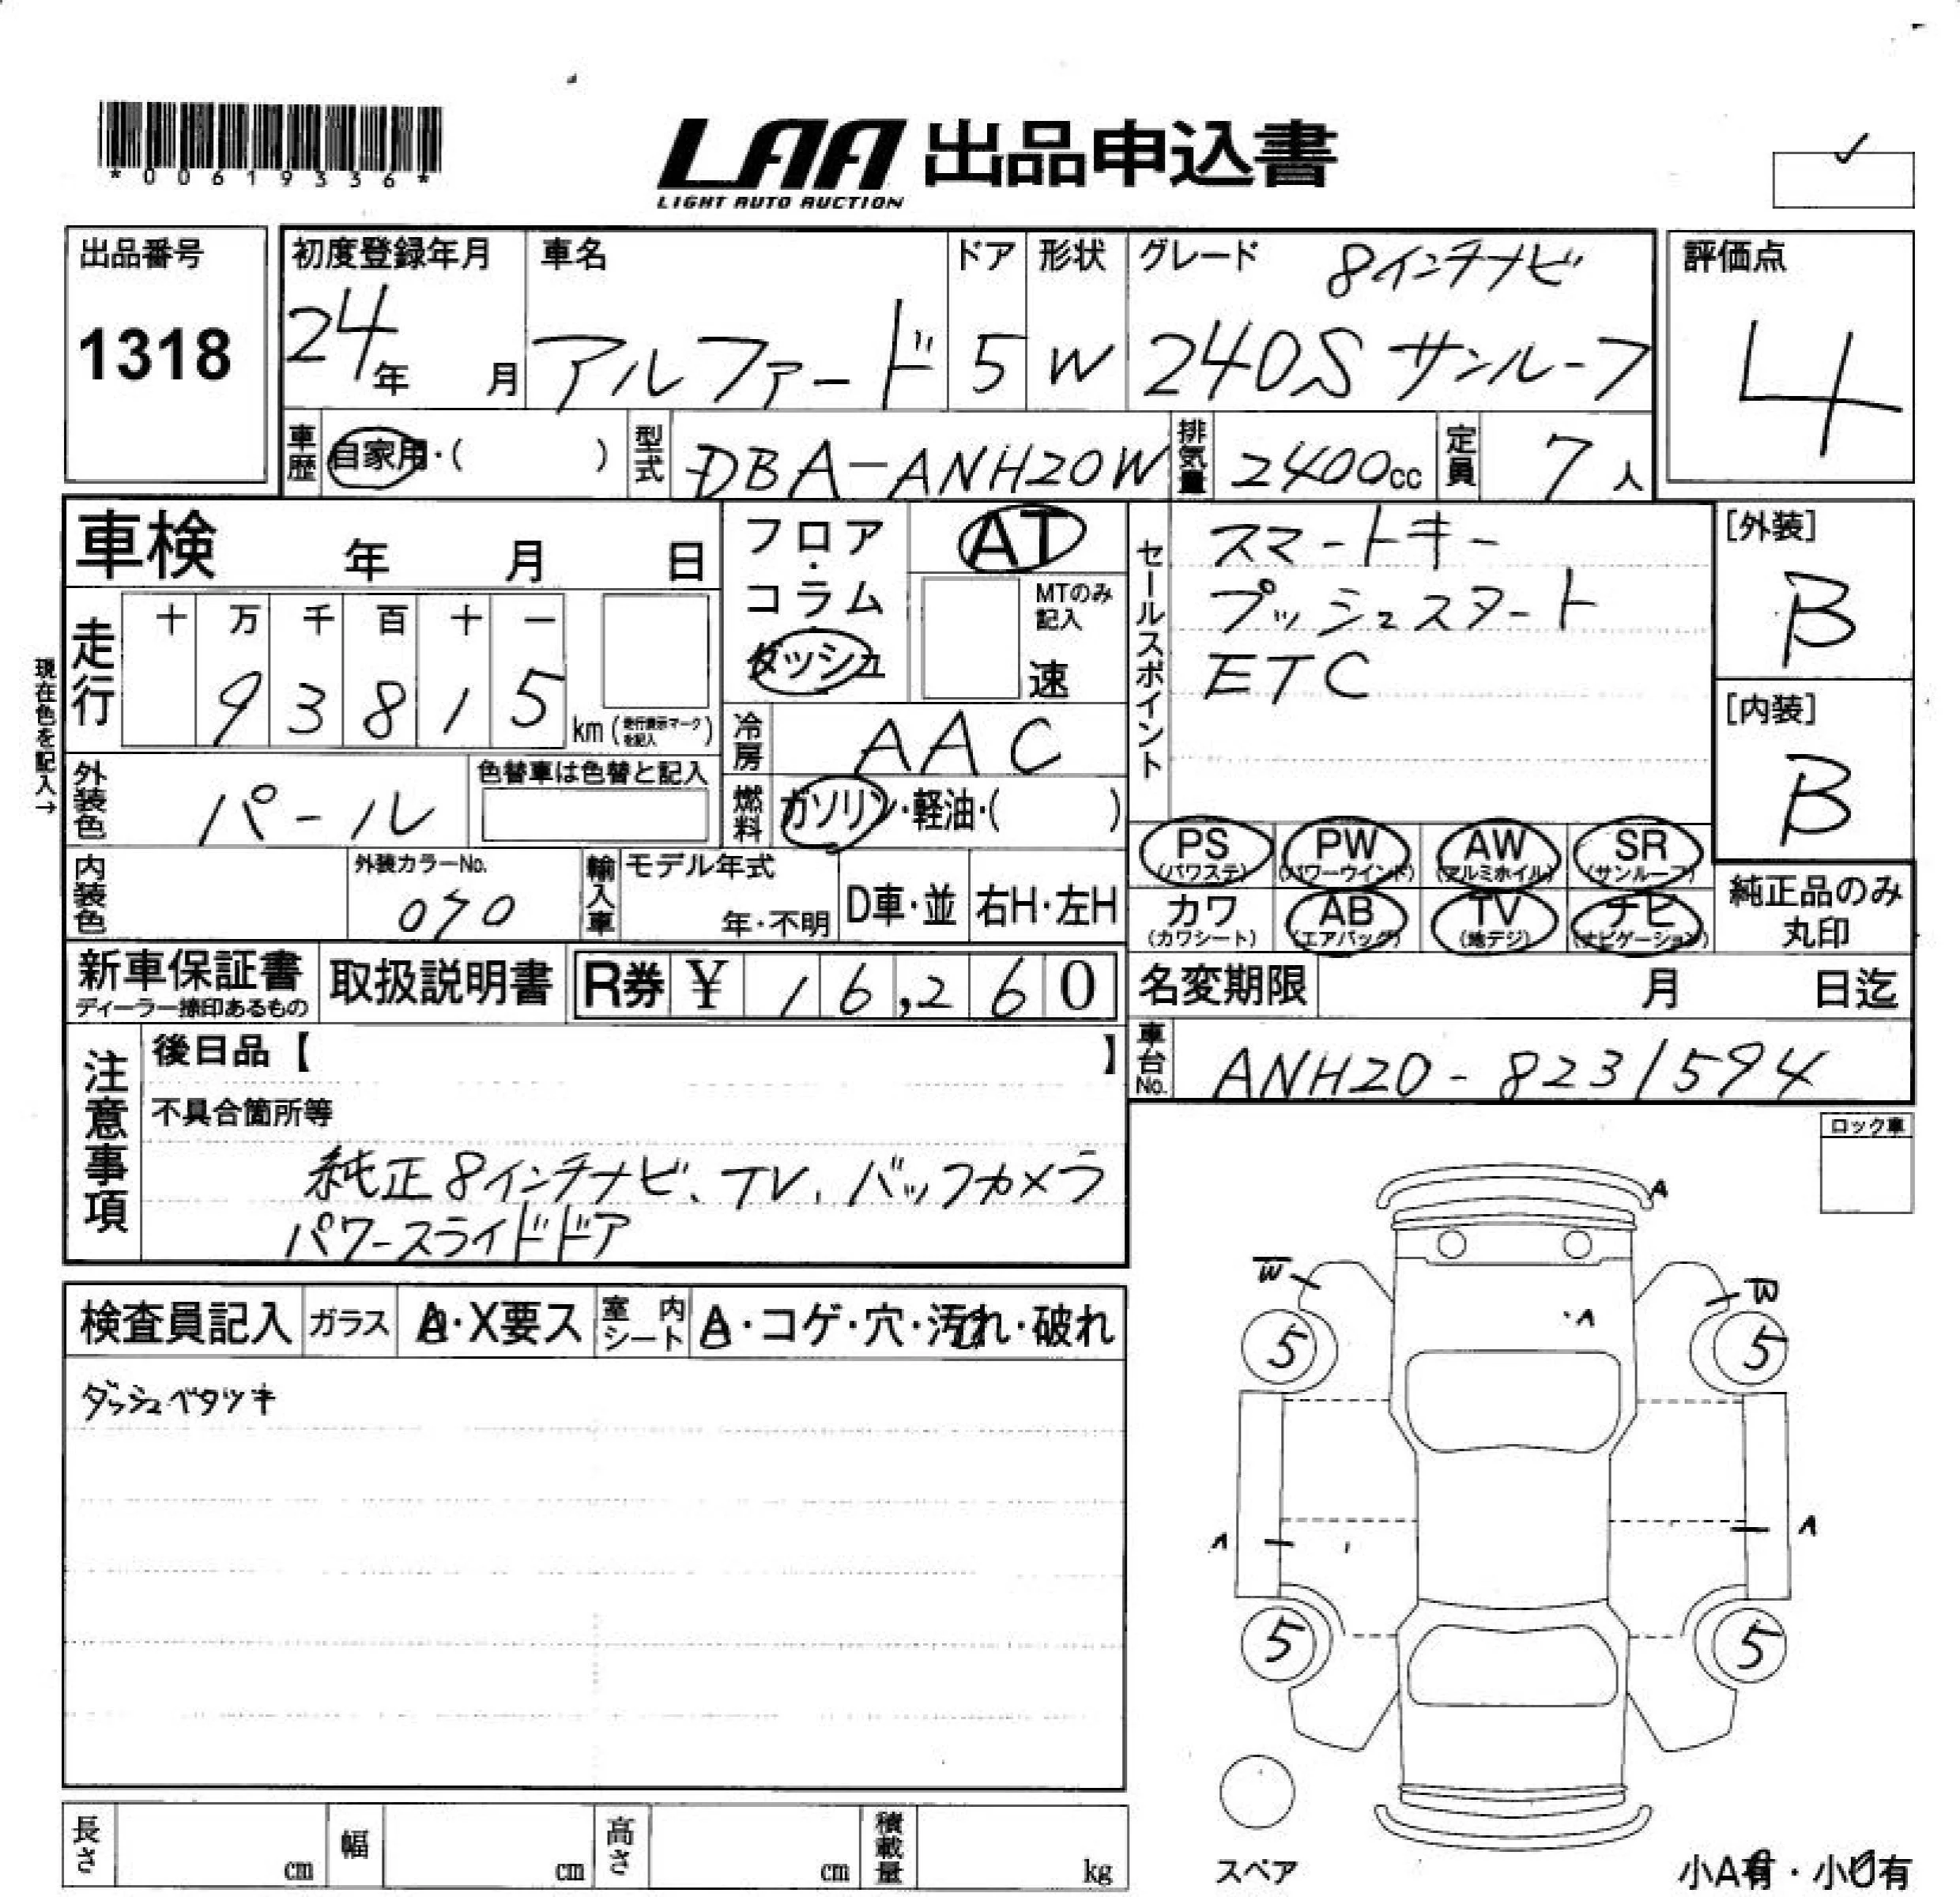 *00619336*
LAA 出品申込書
LIGHT AUTO AUCTION
出品番号
1318
初度登録年月
24年 月
車名
アルファード
ドア
5
形状
W
グレード 8インチナビ
240S サンルーフ
評価点
4
車歴 自家用・( )
型式 DBA-ANH20W
排気量 2400cc
定員 7人
車検 年 月 日
現在色を記入→
走行
十 万 千 百 十 一
9 3 8 1 5
km(走行表示マークを記入)
フロア・コラム・ダッシュ
AT
MTのみ記入
速
冷房 AAC
燃料 ガソリン・軽油・( )
外装色 パール
色替車は色替と記入
内装色
外装カラーNo.
070
輸入車
モデル年式
年・不明
D車・並
右H・左H
セールスポイント
スマートキー
プッシュスタート
ETC
[外装]
B
[内装]
B
PS (パワステ)
PW (パワーウインド)
AW (アルミホイル)
SR (サンルーフ)
カワ (カワシート)
AB (エアバッグ)
TV (地デジ)
ナビ (ナビゲーション)
純正品のみ
丸印
新車保証書
ディーラー捺印あるもの
取扱説明書
R券 ¥ 16,260
名変期限 月 日迄
車台No. ANH20-8231594
注意事項
後日品【 】
不具合箇所等
純正8インチナビ、TV、バックカメラ
パワースライドドア
ロック車
検査員記入
ガラス
A・X要ス
室内シート
A・コゲ・穴・汚れ・破れ
ダッシュベタツキ
A
W
W
A
5
5
A
A
5
5
スペア
小A有・小U有
長さ cm
幅 cm
高さ cm
積載量 kg